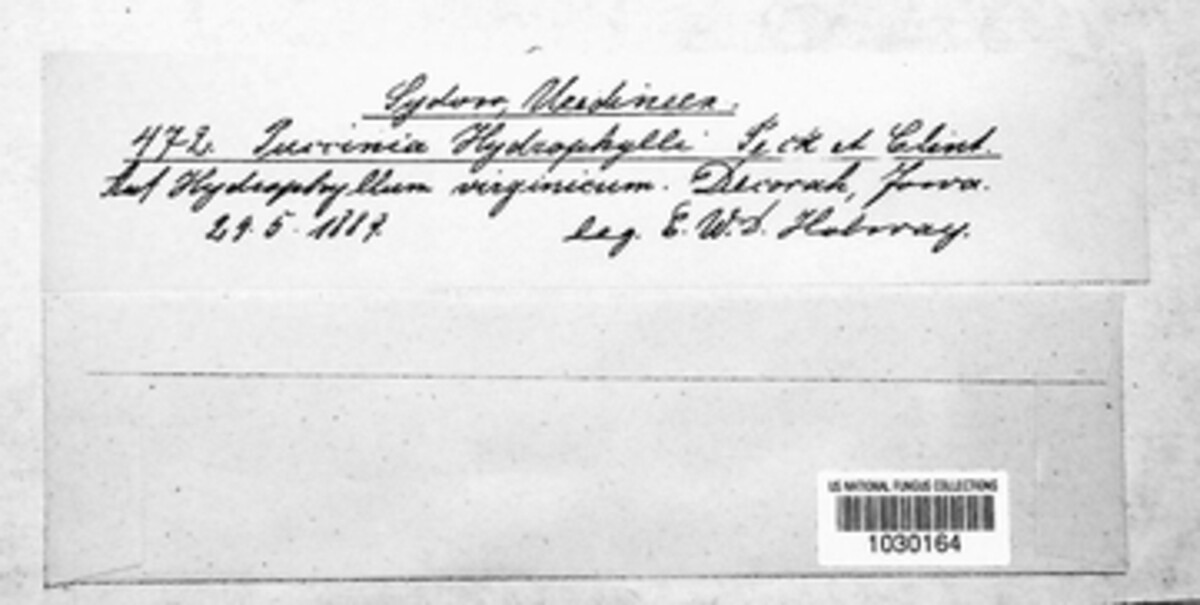 Sydow, Uredineen.
472. Puccinia Hydrophylli Peck et Clint.
Auf Hydrophyllum virginicum. Decorah, Jowa.
29. 5. 1887. leg. E. W. D. Holway.
US NATIONAL FUNGUS COLLECTIONS
1030164